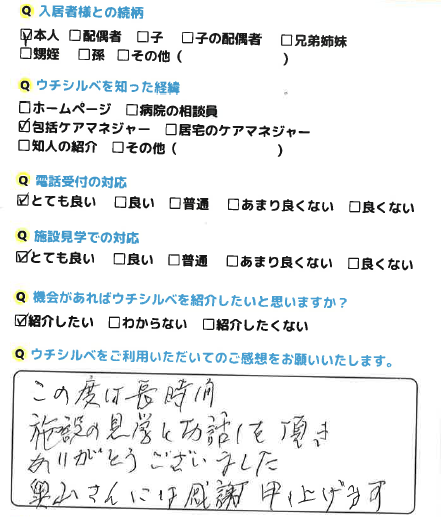 Q 入居者様との続柄
☑本人 □配偶者 □子 □子の配偶者 □兄弟姉妹
□甥姪 □孫 □その他（ ）
Q ウチシルベを知った経緯
□ホームページ □病院の相談員
☑包括ケアマネジャー □居宅のケアマネジャー
□知人の紹介 □その他（ ）
Q 電話受付の対応
☑とても良い □良い □普通 □あまり良くない □良くない
Q 施設見学での対応
☑とても良い □良い □普通 □あまり良くない □良くない
Q 機会があればウチシルベを紹介したいと思いますか？
☑紹介したい □わからない □紹介したくない
Q ウチシルベをご利用いただいてのご感想をお願いいたします。
この度は長時間
施設の見学とお話しを頂き
ありがとうございました
奥山さんには感謝申し上げます